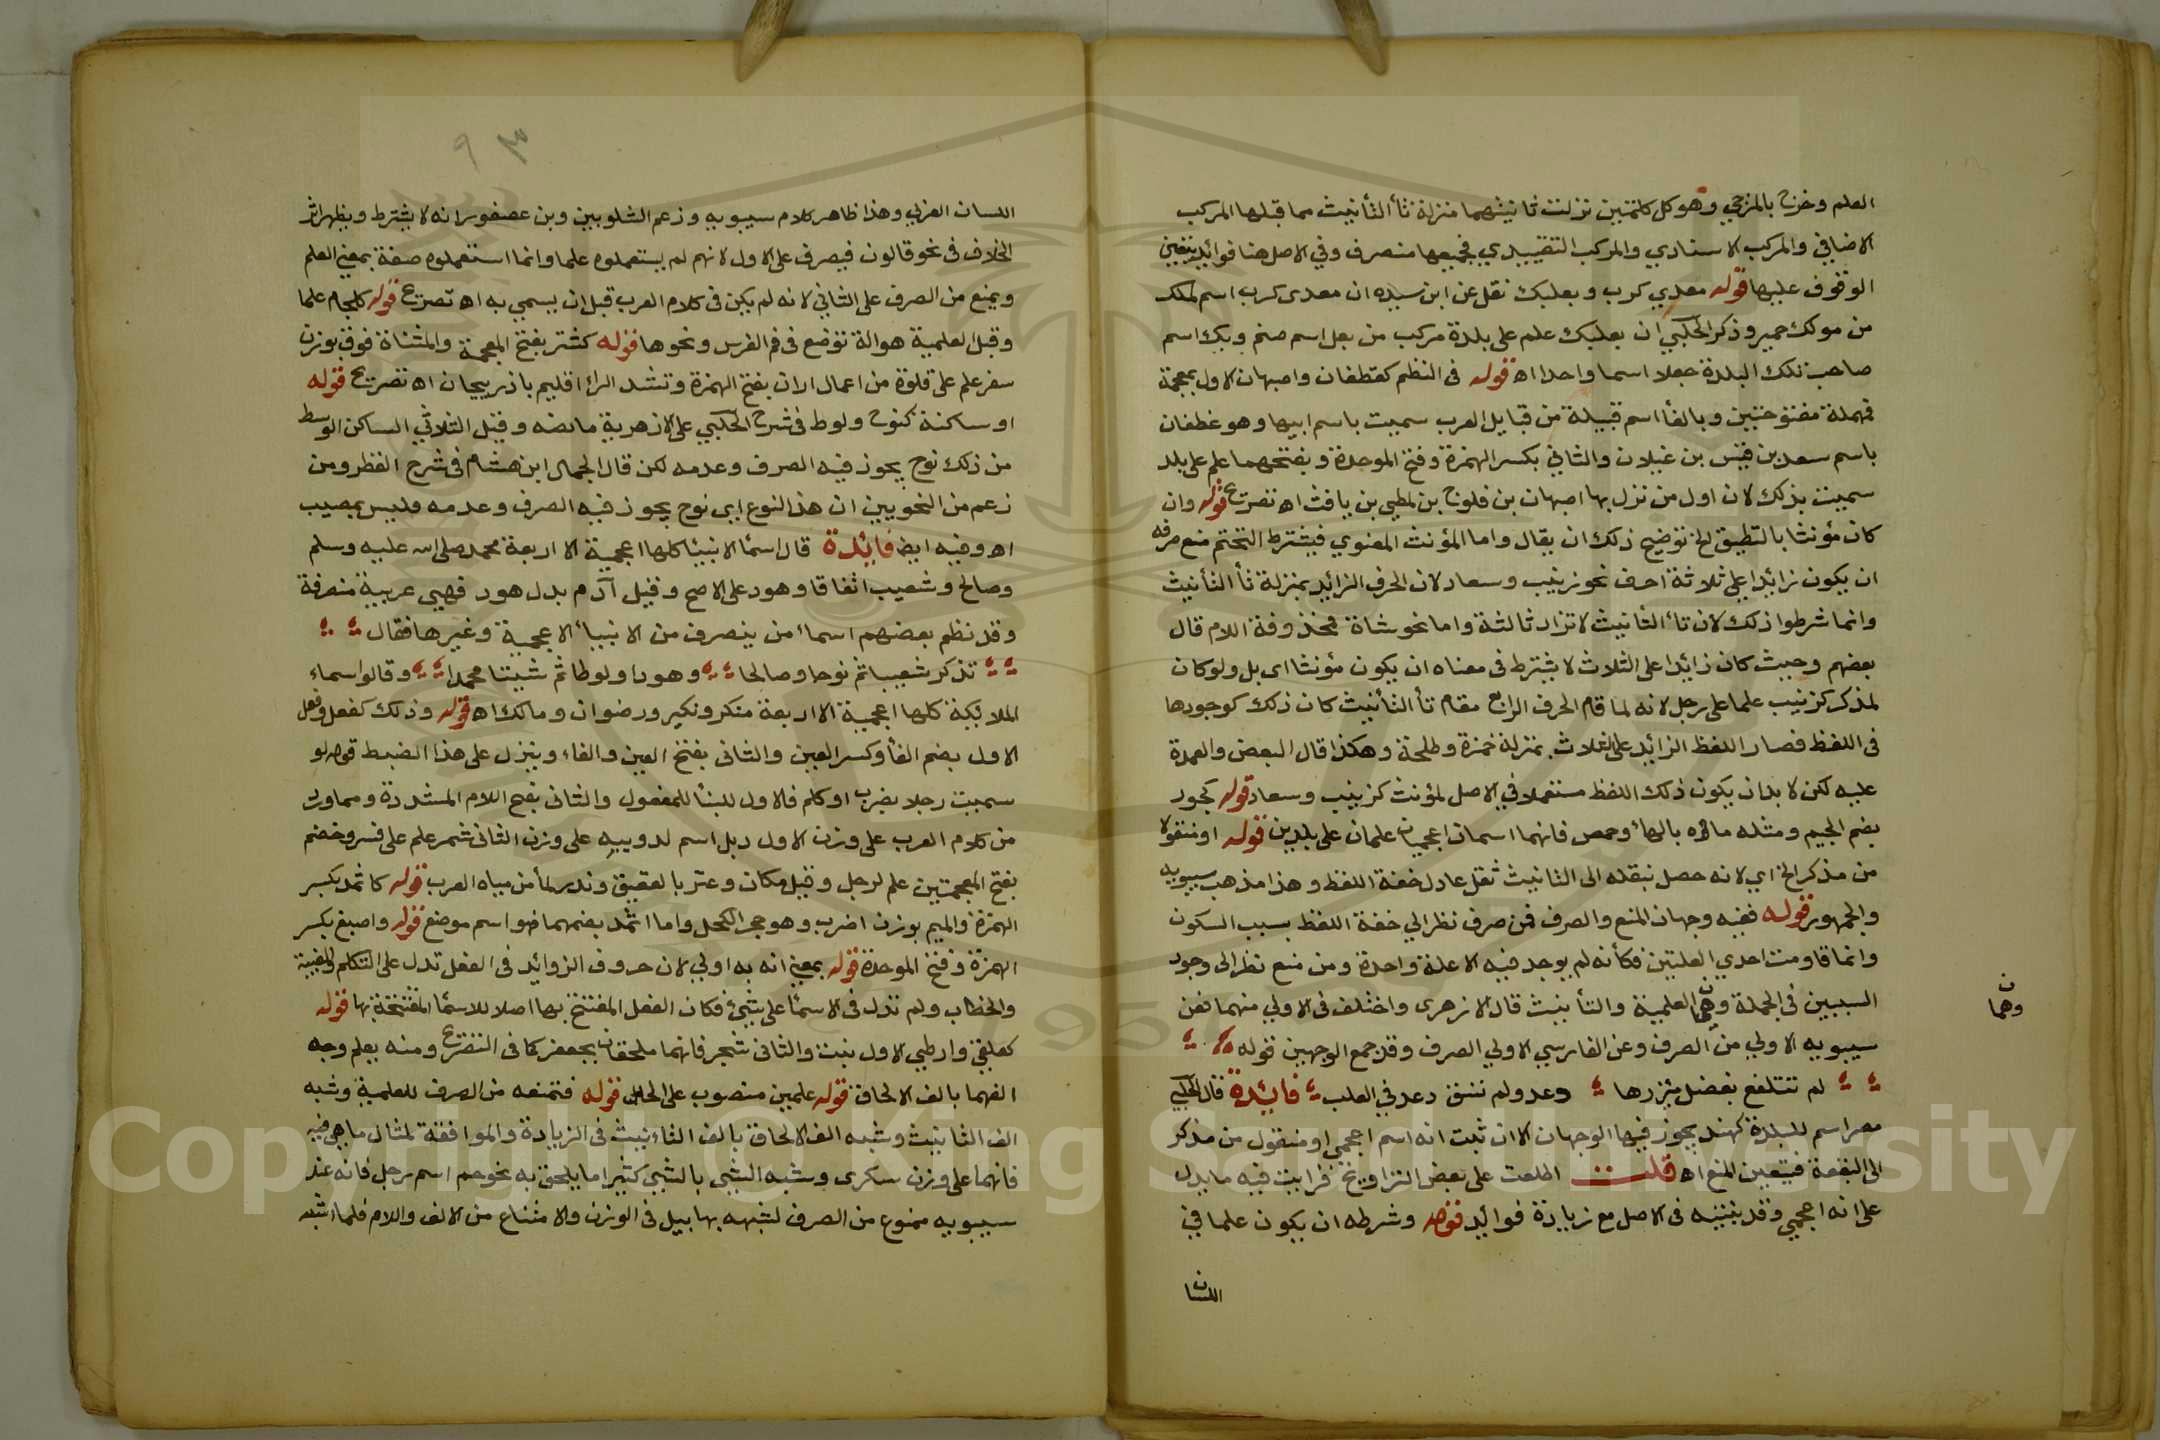 العلم وخرج بالمزجي وهو كل كلمتين نزلت ثانيتهما منزلة تأ التأنيث مما قبلها المركب
الاضافي والمركب الاسنادي والمركب التقييدي فجميعها منصرف وفي الاصل هنا فوائد يتعين
الوقوف عليها قوله معدي كرب وبعلبك نقل عن ابن سيده ان معدي كرب اسم لملك
من مولك حمير وذكر الحلبي ان بعلبك علم على بلدة مركب من بعل اسم صنم وبك اسم
صاحب تلك البلدة جعلا اسما واحدا اه قوله في النظم كغطفان واصبهان الاول بمعجمة
فمهملة مفتوحتين وبالفأ اسم قبيلة من قبايل العرب سميت باسم ابيها وهو غطفان
باسم سعد بن قيس بن غيلان والثاني بكسر الهمزة وفتح الموحدة وبفتحهما علم على بلد
سميت بذلك لان اول من نزل بها اصبهان بن فلوج بن لمطي بن يافث اه تصريح قوله وان
كان مؤنثا بالتطبيق الخ توضيح ذلك ان يقال واما المؤنث المعنوي فيشترط التحتم منع صرفه
ان يكون زائدا على ثلاثة احرف نحو زينب وسعاد لان الحرف الزائد بمنزلة تأ التأنيث
وانما شرطوا ذلك لان تاء التأنيث لا تزاد ثالثة واما نحو شاة فمحذوفة اللام قال
بعضهم وحيث كان زائدا على الثلاث لا يشترط في معناه ان يكون مؤنثا اي بل ولو كان
لمذكر كزينب علما على رجل لانه لما قام الحرف الرابع مقام تأ التأنيث كان ذلك كوجودها
في اللفظ فصار اللفظ الزائد على الثلاث بمنزلة حمزة وطلحة وهكذا قال البعض والعمدة
عليه لكن لا بد ان يكون ذلك اللفظ مستعملا في الاصل لمؤنث كزينب وسعاد قوله كجور
بضم الجيم ومثله ماه بالهاء وحمص فانهما اسمان اعجميان علمان على بلدين قوله او منقولا
من مذكر الخ اي لانه حصل بنقله الى التانيث ثقل عادل خفة اللفظ وهذا مذهب سيبويه
والجمهور قوله ففيه وجهان المنع والصرف فمن صرف نظر الي خفة اللفظ بسبب السكون
وانها قاومت احدي العلتين فكأنه لم يوجد فيه الا علة واحدة ومن منع نظر الى وجود
السببين في الجملة وهي العلمية والتأنيث قال الازهرى واختلف في الاولي منهما فعن
وهمان
سيبويه الاولي من الصرف وعن الفارسي الاولي الصرف وقد جمع الوجهين قوله
لم تتلفع بفضل مئزرها دعد ولم تسق دعد في العلب فائدة قال الحلبي
مصر اسم للبلدة كهند يجوز فيها الوجهان الا ان ثبت انه اسم اعجمي او منقول من مذكر
الى البقعة فيتعين المنع اه قلت اطلعت على بعض التواريخ فرايت فيه ما يدل
على انه اعجمي وقد بينته في الاصل مع زيادة فوائد قوله وشرطه ان يكون علما في
اللسان
اللسان العربي وهذا ظاهر كلام سيبويه وزعم الشلوبين وبن عصفور انه لا يشترط ويظهر اثر
الخلاف في نحو قالون فيصرف على الاول لانهم لم يستعملوه علما وانما استعملوه صفة بمعني العلم
ويمنع من الصرف على الثاني لانه لم يكن في كلام العرب قبل ان يسمي به اه تصريح قوله كلجام علما
وقبل العلمية هو الة توضع في فم الفرس ونحوها قوله كشتر بفتح المعجمة والمثناة فوق بوزن
سفر علم على قلعة من اعمال اران بفتح الهمزة وتشد الرا اقليم باذربيجان اه تصريح قوله
او ساكنة كنوح ولوط في شرح الحلبي على الازهرية ما نصه وقيل الثلاثي الساكن الوسط
من ذلك نوح يجوز فيه الصرف وعدمه لكن قال الجمال ابن هشام في شرح القطر ومن
زعم من النحويين ان هذا النوع اي نوح يجوز فيه الصرف وعدمه فليس بمصيب
اه وفيه ايضا فائدة قال اسمأ الانبيأ كلها اعجمية الا اربعة محمد صلى الله عليه وسلم
وصالح وشعيب اتفاقا وهود على الاصح وقيل آدم بدل هود فهي عربية منصرفة
وقد نظم بعضهم اسماء من ينصرف من الانبياء الاعجمية وغيرها فقال
تذكر شعيبا ثم نوحا وصالحا وهودا ولوطا ثم شيتا محمدا وقالوا اسماء
الملائكة كلها اعجمية الا اربعة منكر ونكير ورضوان ومالك اه قوله وذلك كفعل وفعل
الاول بضم الفأ وكسر العين والثانى بفتح العين والفاء وينزل على هذا الضبط قوله لو
سميت رجلا بضرب او كلم فالاول للبنأ للمفعول والثانى بفتح اللام المشددة ومما ورد
من كلام العرب على وزن الاول دبل اسم لدويبه على وزن الثانى شمر علم على فرس وخضم
بفتح المعجمتين علم لرجل وقيل مكان وعثر بالعقيق وندر لمأ من مياه العرب قوله كاثمد بكسر
الهمزة والميم بوزن اضرب وهو حجر الكحل واما اثمد بضمهما فهو اسم موضع قوله واصبع بكسر
الهمزة وفتح الموحدة قوله بمعني انه به اولي لان حروف الزوائد في الفعل تدل على التكلم والغيبة
والخطاب ولم تدل في الاسمأ على شيء فكان الفعل المفتتح بها اصلا للاسمأ المفتتحة بها قوله
كعلقي وارطي الاول نبت والثانى شجر فانهما ملحقان بجعفر كما في التصريح ومنه يعلم وجه
الفهما بالف الالحاق قوله علمين منصوب على الحال قوله فتمنعه من الصرف للعلمية وشبه
الف التانيث وشبه الف الالحاق بالف التاءنيث في الزيادة والموافقة لمثال ما هي فيه
فانهما على وزن سكرى وشبه الشي بالشي كثيرا ما يلحق به نحو حم اسم رجل فانه عند
سيبويه ممنوع من الصرف لشبهه بهابيل في الوزن والامتناع من الالف واللام فلما اشبه